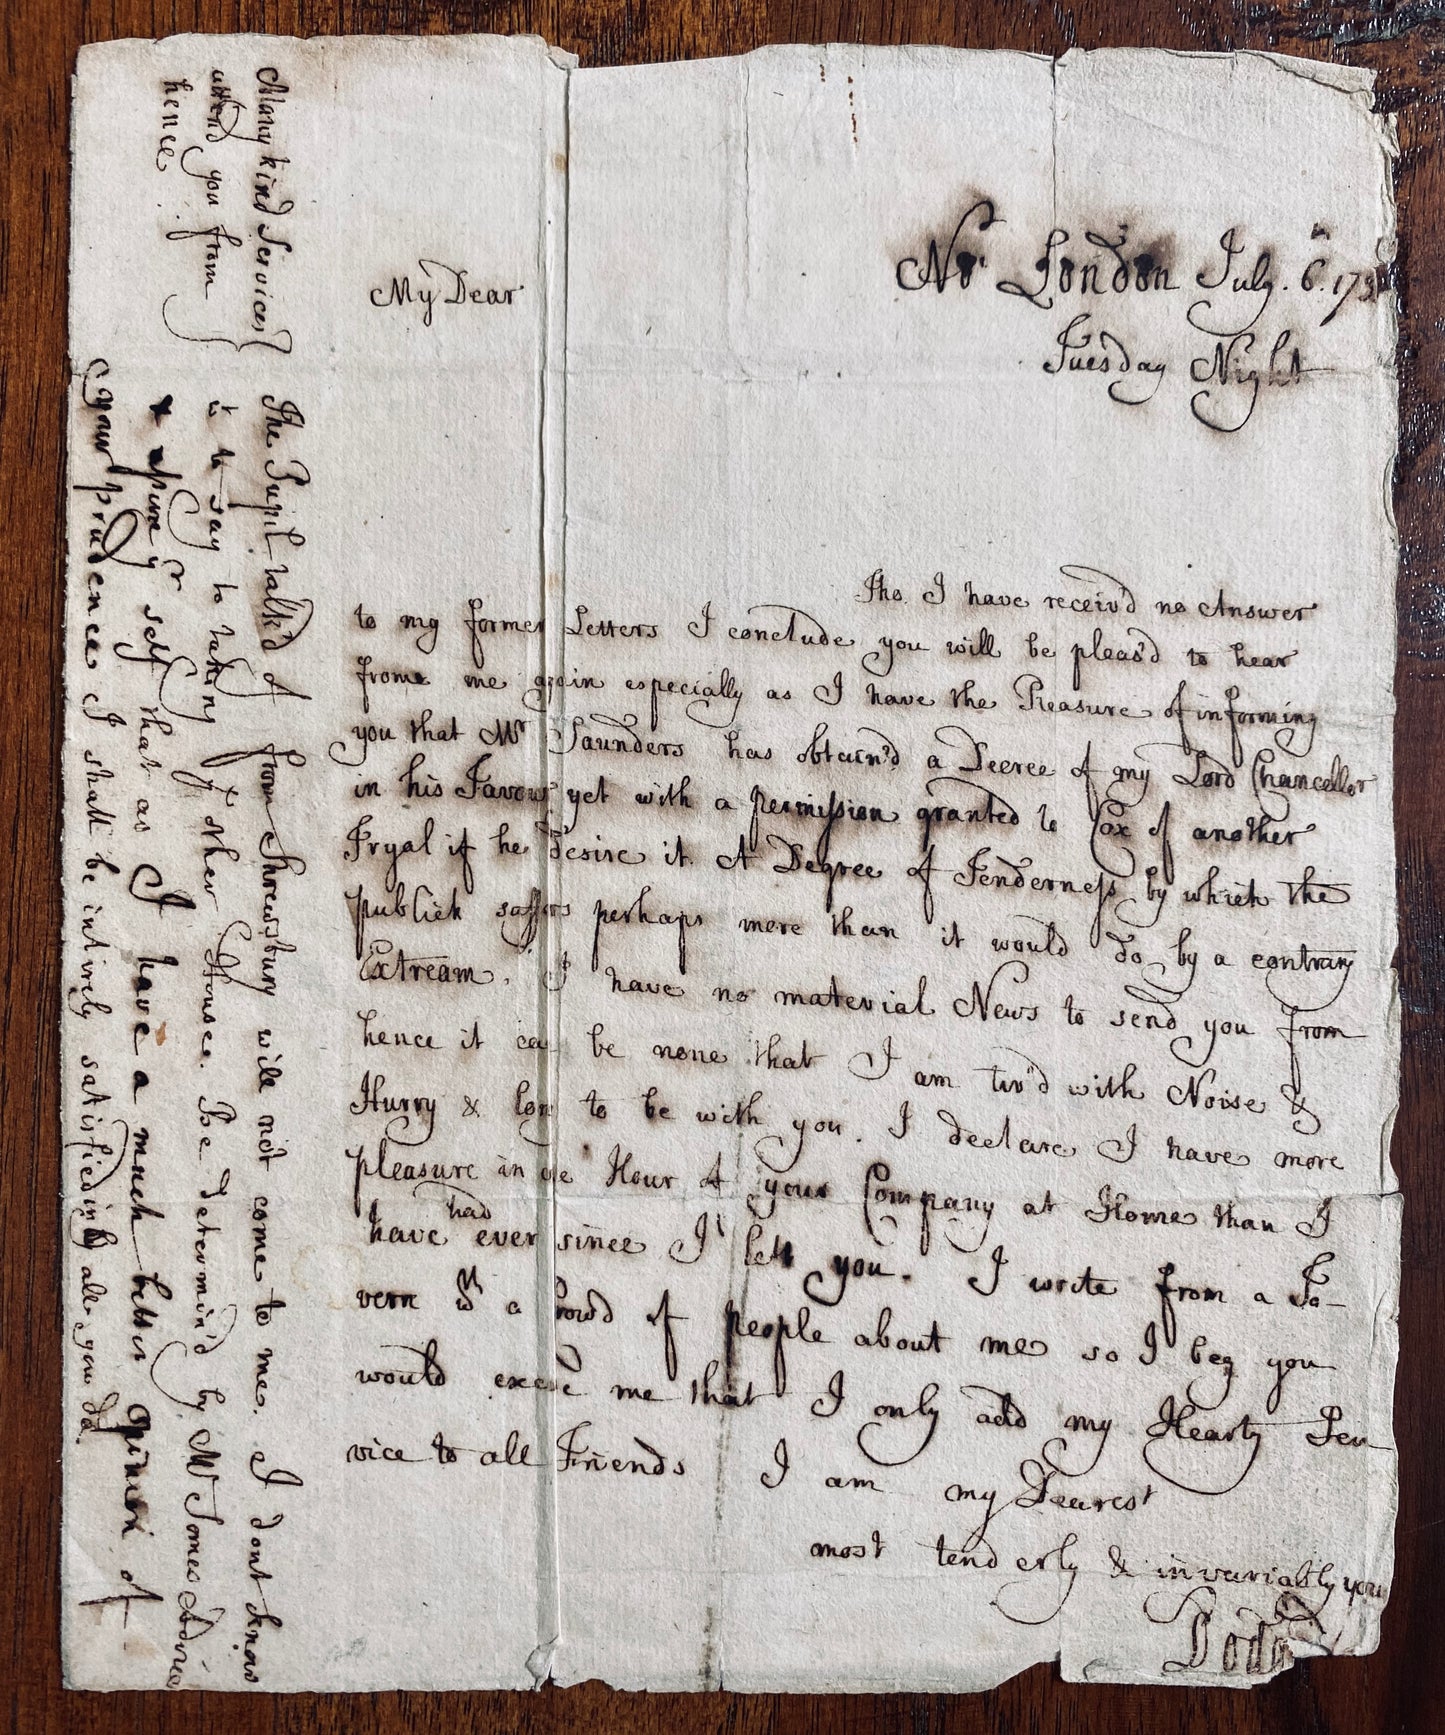 No. London July. 6th. 173
Tuesday Night
My Dear
Tho I have receiv'd no Answer
to my former Letters I conclude you will be pleas'd to hear
from me again especially as I have the Pleasure of informing
you that Mr Saunders has obtain'd a Decree of my Lord Chancellor
in his Favour yet with a permission granted to Cox of another
Tryal if he desire it. A Degree of Tenderness by which the
publick suffers perhaps more than it would do by a contrary
Extream. I have no material News to send you from
hence it can be none that I am tir'd with Noise &
Hurry & long to be with you. I declare I have more
pleasure in one Hour of your Company at Home than I
have had ever since I left you. I write from a Ta-
vern wth a Crowd of people about me so I beg you
would excuse me that I only add my Hearty Ser
vice to all Friends I am my Dearest
most tenderly & invariably your
Many kind Services
attend you from
hence
The Pupil talk'd of from Shrewsbury will not come to me. I dont know
w to say to taking ye other House. Be determin'd by Mr Jones Advice
& yr self that as I have a much better opinion of
your prudence I shall be intirely satisfied in all you do.